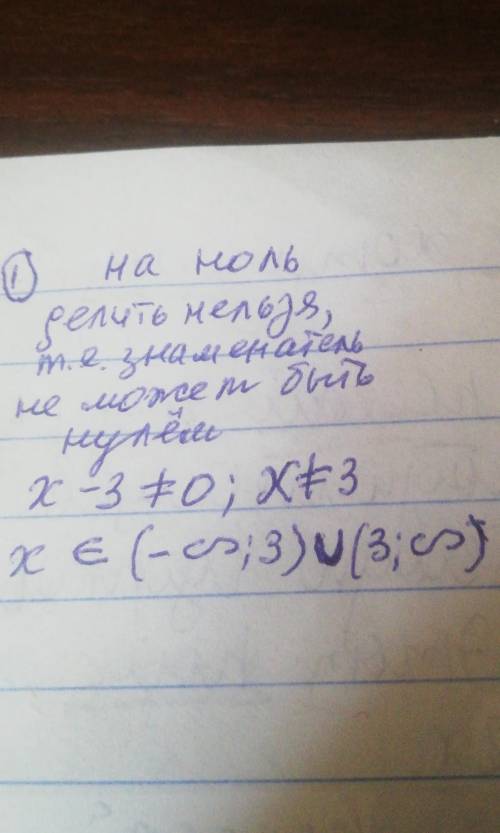 ① на ноль
делить нельзя,
т.е. знаменатель
не может быть
нулём
x - 3 ≠ 0; x ≠ 3
x ∈ (-∞; 3) ∪ (3; ∞)